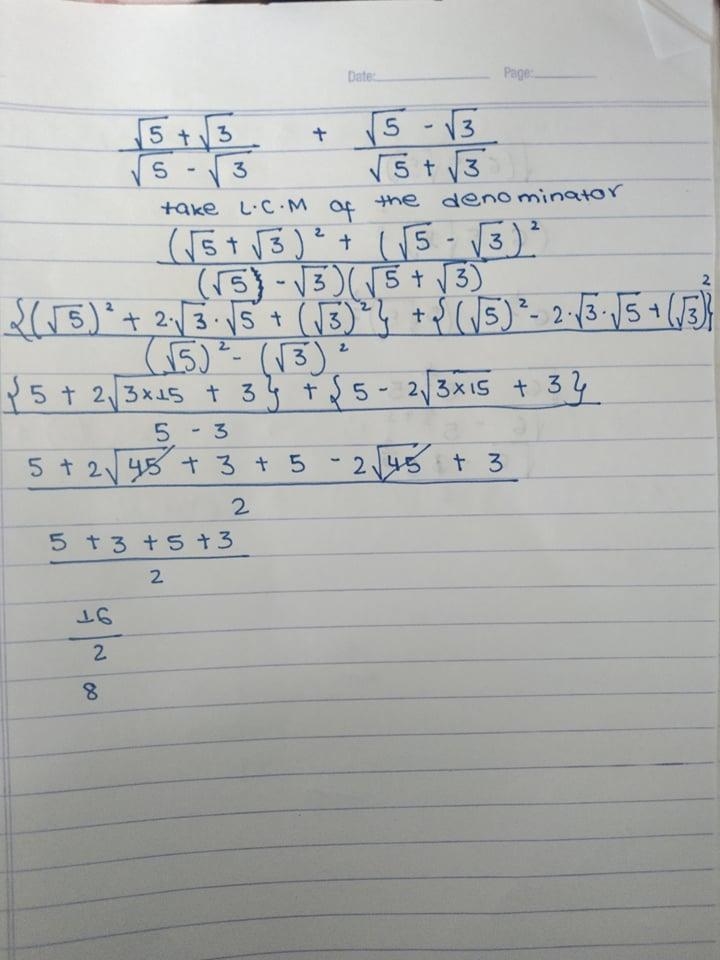 Date: Page:
√5 + √3 / √5 - √3 + √5 - √3 / √5 + √3
take L.C.M of the denominator
(√5 + √3)² + (√5 - √3)²
(√5 - √3)(√5 + √3)
{(√5)² + 2·√3·√5 + (√3)²} + {(√5)² - 2·√3·√5 + (√3)²}
(√5)² - (√3)²
{5 + 2√3×15 + 3} + {5 - 2√3×15 + 3}
5 - 3
5 + 2√45 + 3 + 5 - 2√45 + 3
2
5 + 3 + 5 + 3
2
16
2
8